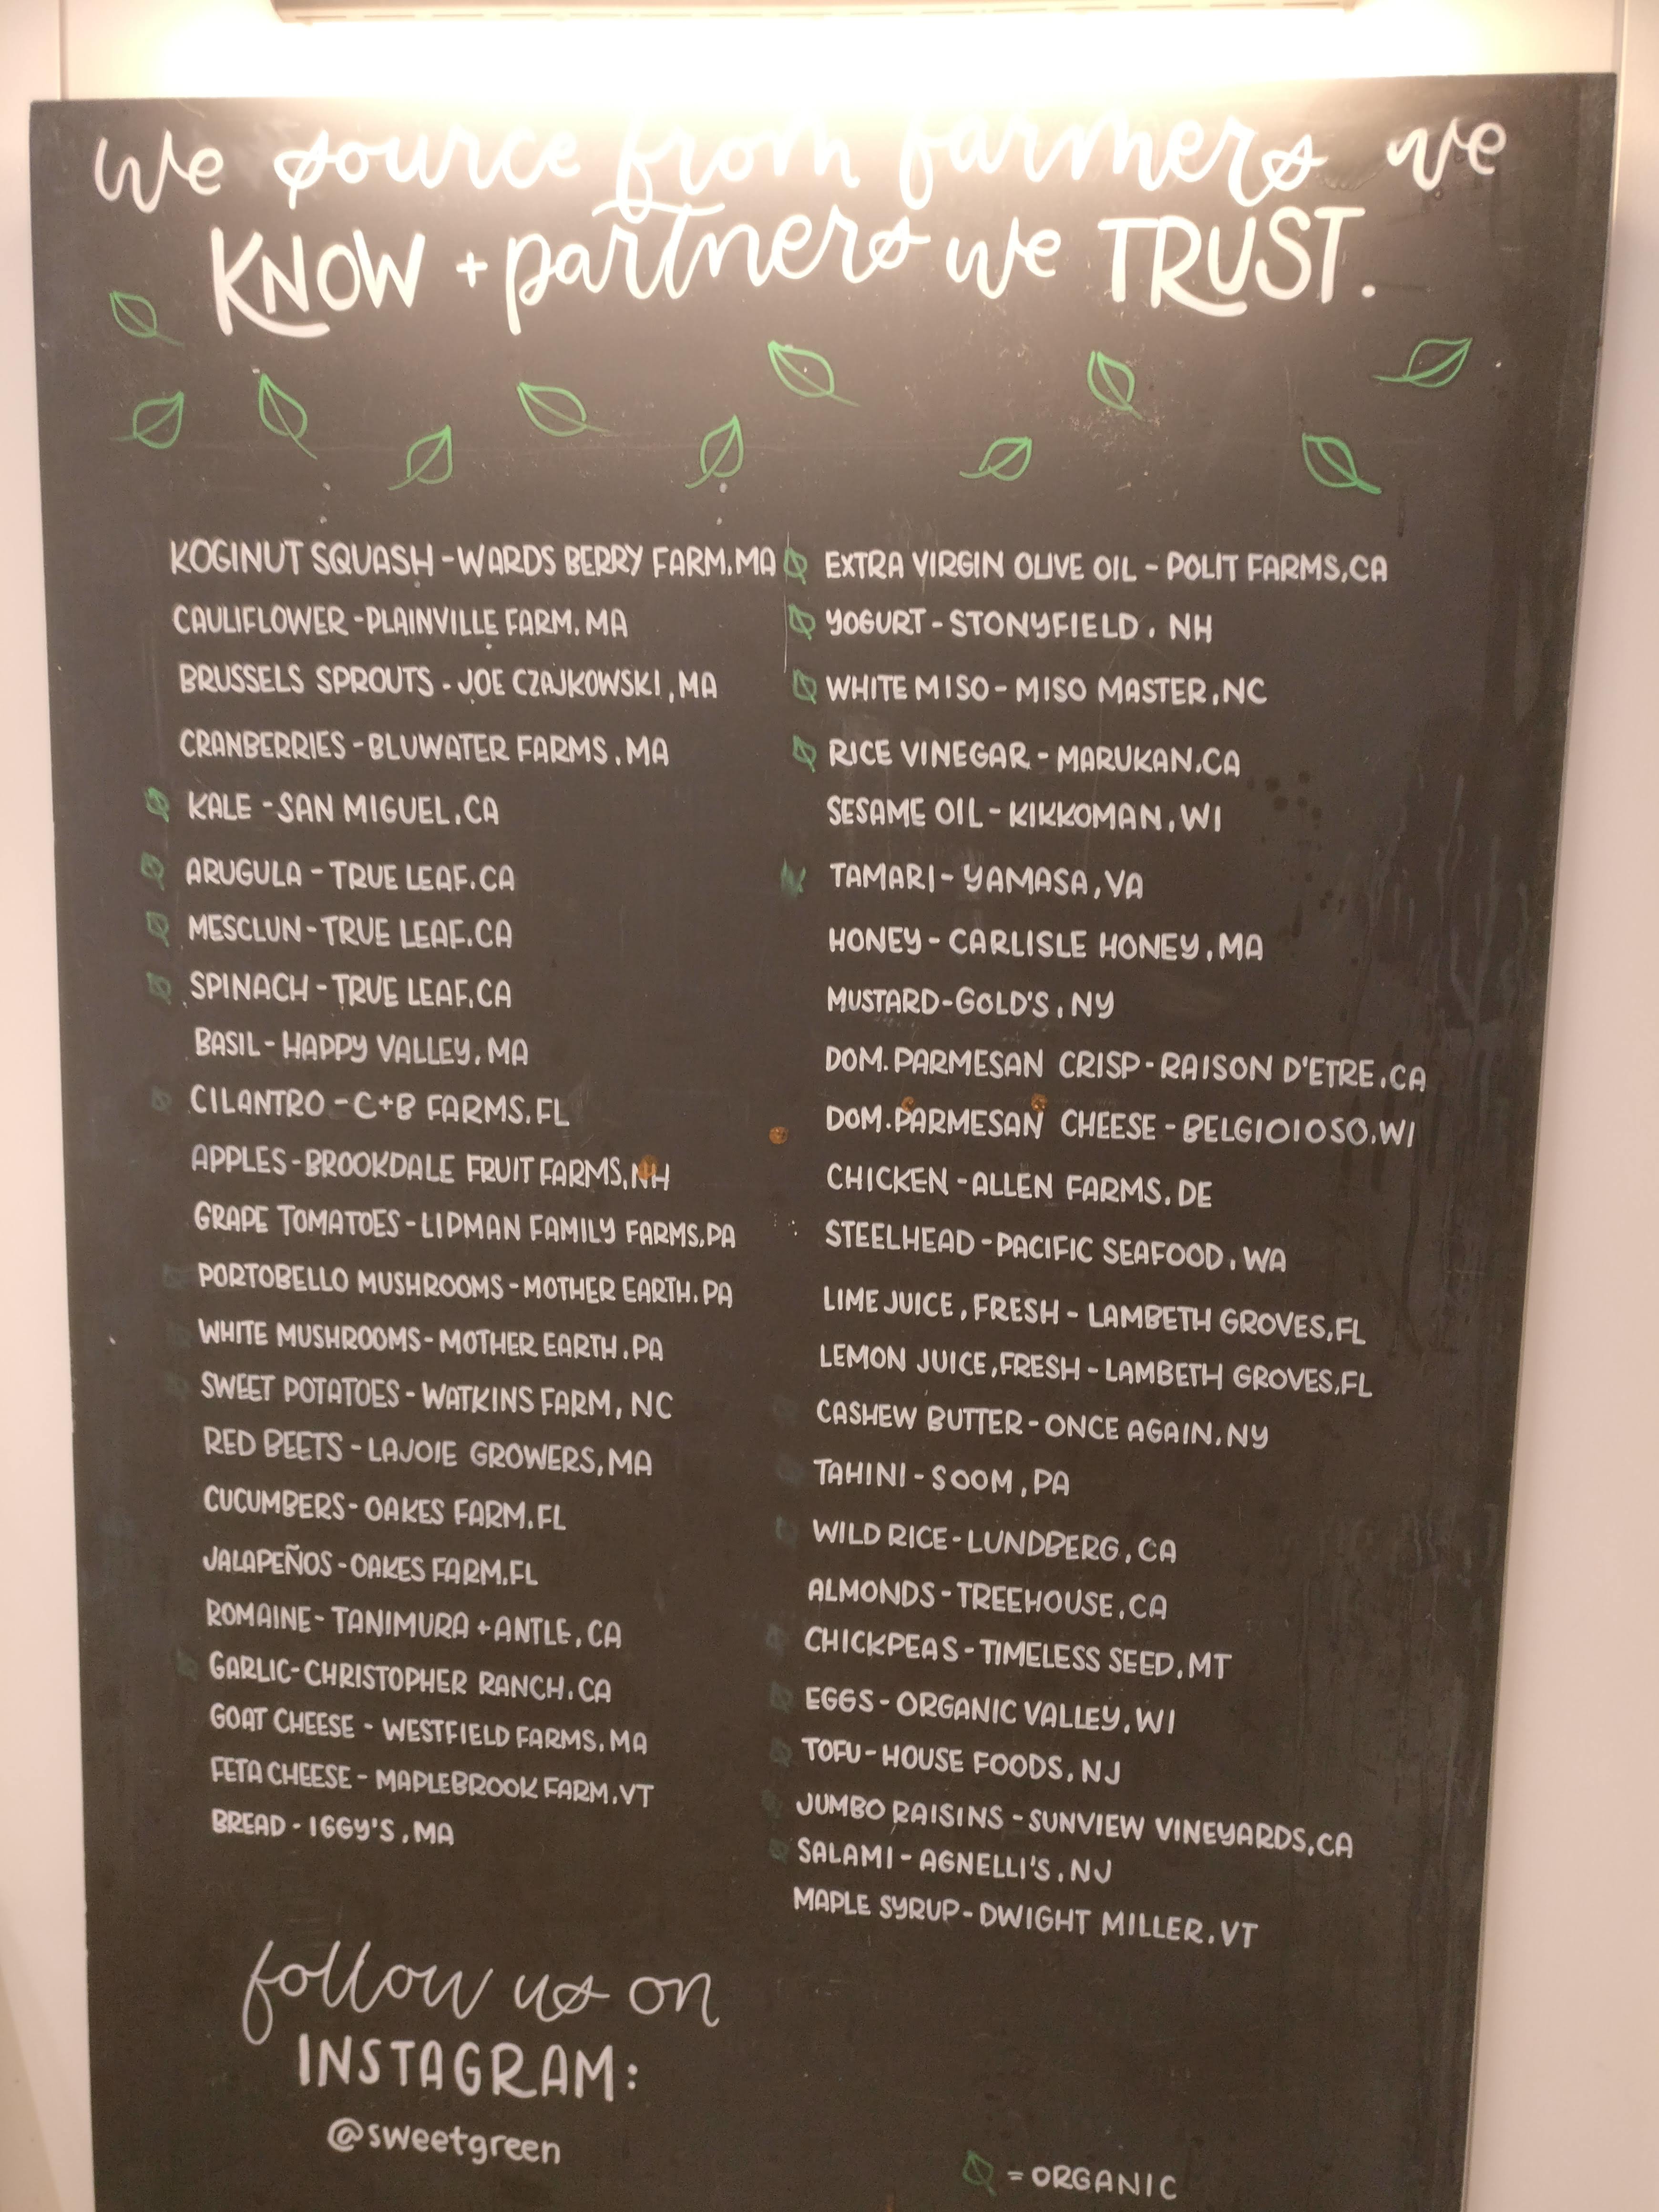 we source from farmers we
KNOW + partners we TRUST.
KOGINUT SQUASH - WARDS BERRY FARM, MA
CAULIFLOWER - PLAINVILLE FARM, MA
BRUSSELS SPROUTS - JOE CZAJKOWSKI, MA
CRANBERRIES - BLUWATER FARMS, MA
KALE - SAN MIGUEL, CA
ARUGULA - TRUE LEAF, CA
MESCLUN - TRUE LEAF, CA
SPINACH - TRUE LEAF, CA
BASIL - HAPPY VALLEY, MA
CILANTRO - C+B FARMS, FL
APPLES - BROOKDALE FRUIT FARMS, NH
GRAPE TOMATOES - LIPMAN FAMILY FARMS, PA
PORTOBELLO MUSHROOMS - MOTHER EARTH, PA
WHITE MUSHROOMS - MOTHER EARTH, PA
SWEET POTATOES - WATKINS FARM, NC
RED BEETS - LAJOIE GROWERS, MA
CUCUMBERS - OAKES FARM, FL
JALAPEÑOS - OAKES FARM, FL
ROMAINE - TANIMURA + ANTLE, CA
GARLIC - CHRISTOPHER RANCH, CA
GOAT CHEESE - WESTFIELD FARMS, MA
FETA CHEESE - MAPLEBROOK FARM, VT
BREAD - IGGY'S, MA
EXTRA VIRGIN OLIVE OIL - POLIT FARMS, CA
YOGURT - STONYFIELD, NH
WHITE MISO - MISO MASTER, NC
RICE VINEGAR - MARUKAN, CA
SESAME OIL - KIKKOMAN, WI
TAMARI - YAMASA, VA
HONEY - CARLISLE HONEY, MA
MUSTARD - GOLD'S, NY
DOM. PARMESAN CRISP - RAISON D'ETRE, CA
DOM. PARMESAN CHEESE - BELGIOIOSO, WI
CHICKEN - ALLEN FARMS, DE
STEELHEAD - PACIFIC SEAFOOD, WA
LIME JUICE, FRESH - LAMBETH GROVES, FL
LEMON JUICE, FRESH - LAMBETH GROVES, FL
CASHEW BUTTER - ONCE AGAIN, NY
TAHINI - SOOM, PA
WILD RICE - LUNDBERG, CA
ALMONDS - TREEHOUSE, CA
CHICKPEAS - TIMELESS SEED, MT
EGGS - ORGANIC VALLEY, WI
TOFU - HOUSE FOODS, NJ
JUMBO RAISINS - SUNVIEW VINEYARDS, CA
SALAMI - AGNELLI'S, NJ
MAPLE SYRUP - DWIGHT MILLER, VT
follow us on
INSTAGRAM:
@sweetgreen
= ORGANIC